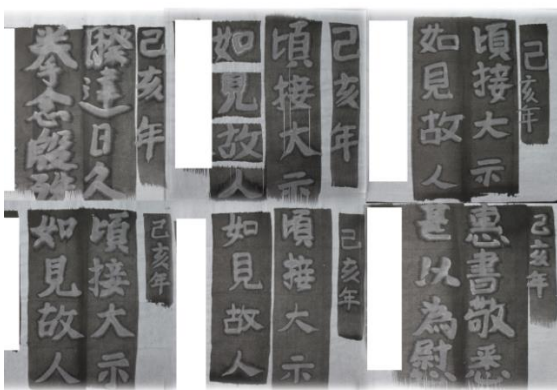 己亥年
睽達日久
眷念殷強
己亥年
頃接大示
如見故人
己亥年
頃接大示
如見故人
己亥年
頃接大示
如見故人
己亥年
頃接大示
如見故人
己亥年
惠書敬悉
甚以為慰